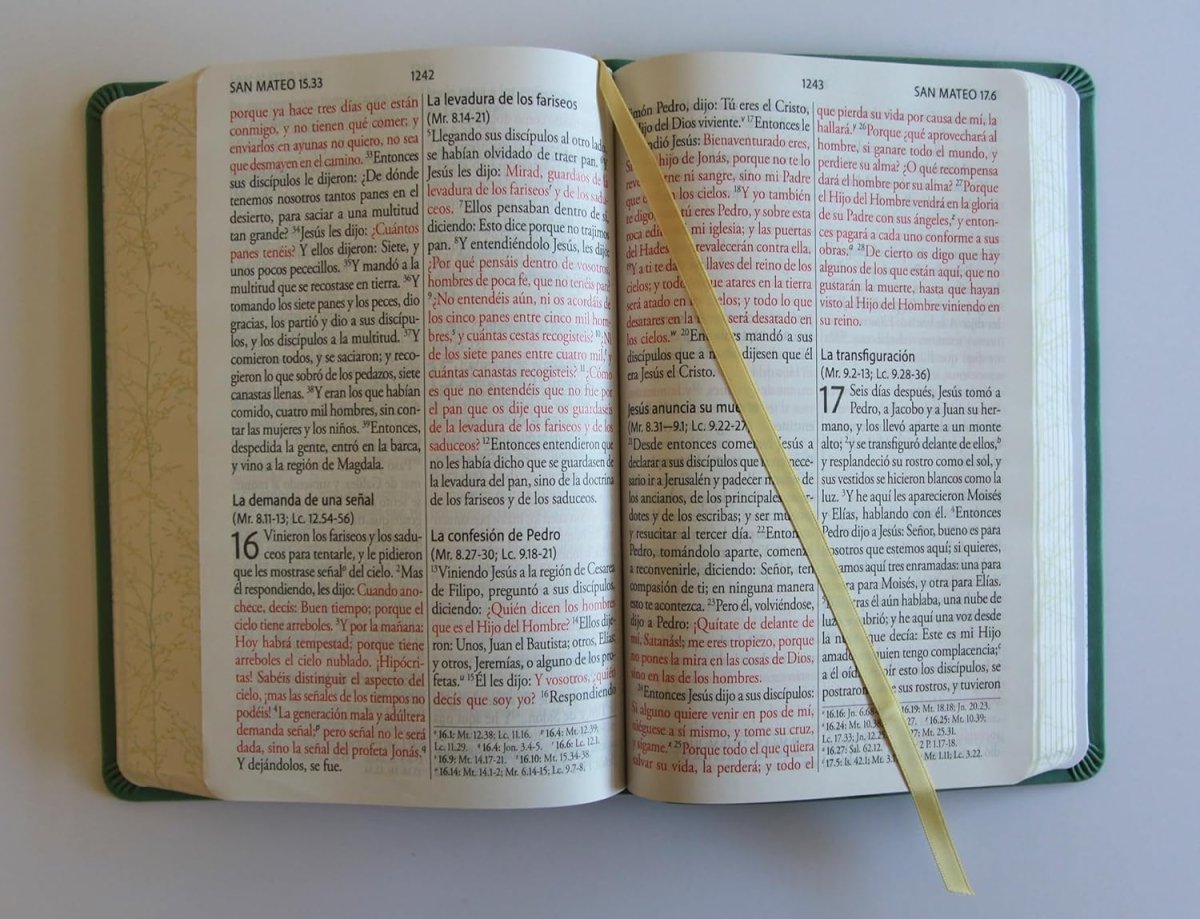 SAN MATEO 15.33
1242
porque ya hace tres días que están
conmigo, y no tienen qué comer; y
enviarlos en ayunas no quiero, no sea
que desmayen en el camino. 33Entonces
sus discípulos le dijeron: ¿De dónde
tenemos nosotros tantos panes en el
desierto, para saciar a una multitud
tan grande? 34Jesús les dijo: ¿Cuántos
panes tenéis? Y ellos dijeron: Siete, y
unos pocos pececillos. 35Y mandó a la
multitud que se recostase en tierra. 36Y
tomando los siete panes y los peces, dio
gracias, los partió y dio a sus discípu-
los, y los discípulos a la multitud. 37Y
comieron todos, y se saciaron; y reco-
gieron lo que sobró de los pedazos, siete
canastas llenas. 38Y eran los que habían
comido, cuatro mil hombres, sin con-
tar las mujeres y los niños. 39Entonces,
despedida la gente, entró en la barca,
y vino a la región de Magdala.
La demanda de una señal
(Mr. 8.11-13; Lc. 12.54-56)
16 Vinieron los fariseos y los sadu-
ceos para tentarle, y le pidieron
que les mostrase señalo del cielo. 2Mas
él respondiendo, les dijo: Cuando ano-
chece, decís: Buen tiempo; porque el
cielo tiene arreboles. 3Y por la mañana:
Hoy habrá tempestad; porque tiene
arreboles el cielo nublado. ¡Hipócri-
tas! Sabéis distinguir el aspecto del
cielo, ¡mas las señales de los tiempos no
podéis! 4La generación mala y adúltera
demanda señal;p pero señal no le será
dada, sino la señal del profeta Jonás.q
Y dejándolos, se fue.
La levadura de los fariseos
(Mr. 8.14-21)
5Llegando sus discípulos al otro lado,
se habían olvidado de traer pan. 6Y
Jesús les dijo: Mirad, guardaos de la
levadura de los fariseosr y de los sadu-
ceos. 7Ellos pensaban dentro de sí,
diciendo: Esto dice porque no trajimos
pan. 8Y entendiéndolo Jesús, les dijo:
¿Por qué pensáis dentro de vosotros,
hombres de poca fe, que no tenéis pan?
9¿No entendéis aún, ni os acordáis de
los cinco panes entre cinco mil hom-
bres,s y cuántas cestas recogisteis? 10¿Ni
de los siete panes entre cuatro mil,t y
cuántas canastas recogisteis? 11¿Cómo
es que no entendéis que no fue por
el pan que os dije que os guardaseis
de la levadura de los fariseos y de los
saduceos? 12Entonces entendieron que
no les había dicho que se guardasen de
la levadura del pan, sino de la doctrina
de los fariseos y de los saduceos.
La confesión de Pedro
(Mr. 8.27-30; Lc. 9.18-21)
13Viniendo Jesús a la región de Cesarea
de Filipo, preguntó a sus discípulos,
diciendo: ¿Quién dicen los hombres
que es el Hijo del Hombre? 14Ellos dije-
ron: Unos, Juan el Bautista; otros, Elías;
y otros, Jeremías, o alguno de los pro-
fetas.u 15Él les dijo: Y vosotros, ¿quién
decís que soy yo? 16Respondiendo
o 16.1: Mt. 12.38; Lc. 11.16. p 16.4: Mt. 12.39;
Lc. 11.29. q 16.4: Jon. 3.4-5. r 16.6: Lc. 12.1.
s 16.9: Mt. 14.17-21. t 16.10: Mt. 15.34-38.
u 16.14: Mt. 14.1-2; Mr. 6.14-15; Lc. 9.7-8.
1243
SAN MATEO 17.6
imón Pedro, dijo: Tú eres el Cristo,
ijo del Dios viviente.v 17Entonces le
ndió Jesús: Bienaventurado eres,
hijo de Jonás, porque no te lo
reve rne ni sangre, sino mi Padre
que los cielos. 18Y yo también
te digo, tú eres Pedro, y sobre esta
roca edif mi iglesia; y las puertas
del Hades revalecerán contra ella.
19Y a ti te da llaves del reino de los
cielos; y todo que atares en la tierra
será atado en elos; y todo lo que
desatares en la será desatado en
los cielos.w 20Ento mandó a sus
discípulos que a n dijesen que él
era Jesús el Cristo.
Jesús anuncia su mue
(Mr. 8.31—9.1; Lc. 9.22-27
21Desde entonces comen Jesús a
declarar a sus discípulos que nece-
sario ir a Jerusalén y padecer m de
los ancianos, de los principales er-
dotes y de los escribas; y ser mu
y resucitar al tercer día. 22Enton
Pedro, tomándolo aparte, comenz
a reconvenirle, diciendo: Señor, ten
compasión de ti; en ninguna manera
esto te acontezca. 23Pero él, volviéndose,
dijo a Pedro: ¡Quítate de delante de
mí, Satanás!; me eres tropiezo, porque
no pones la mira en las cosas de Dios,
sino en las de los hombres.
24Entonces Jesús dijo a sus discípulos:
Si alguno quiere venir en pos de mí,
niéguese a sí mismo, y tome su cruz,
y sígame.x 25Porque todo el que quiera
salvar su vida, la perderá; y todo el
que pierda su vida por causa de mí, la
hallará.y 26Porque ¿qué aprovechará al
hombre, si ganare todo el mundo, y
perdiere su alma? ¿O qué recompensa
dará el hombre por su alma? 27Porque
el Hijo del Hombre vendrá en la gloria
de su Padre con sus ángeles,z y enton-
ces pagará a cada uno conforme a sus
obras.a 28De cierto os digo que hay
algunos de los que están aquí, que no
gustarán la muerte, hasta que hayan
visto al Hijo del Hombre viniendo en
su reino.
La transfiguración
(Mr. 9.2-13; Lc. 9.28-36)
17 Seis días después, Jesús tomó a
Pedro, a Jacobo y a Juan su her-
mano, y los llevó aparte a un monte
alto; 2y se transfiguró delante de ellos,b
y resplandeció su rostro como el sol, y
sus vestidos se hicieron blancos como la
luz. 3Y he aquí les aparecieron Moisés
y Elías, hablando con él. 4Entonces
Pedro dijo a Jesús: Señor, bueno es para
osotros que estemos aquí; si quieres,
amos aquí tres enramadas: una para
ra para Moisés, y otra para Elías.
tras él aún hablaba, una nube de
luz brió; y he aquí una voz desde
la n que decía: Este es mi Hijo
amado uien tengo complacencia;c
a él oíd oír esto los discípulos, se
postraron e sus rostros, y tuvieron
v 16.16: Jn. 6.68 16.19: Mt. 18.18; Jn. 20.23.
x 16.24: Mt. 10.38 27. y 16.25: Mt. 10.39;
Lc. 17.33; Jn. 12.25 27: Mt. 25.31.
a 16.27: Sal. 62.12. 2 P. 1.17-18.
c 17.5: Is. 42.1; Mt. 3.1 Mr. 1.11; Lc. 3.22.